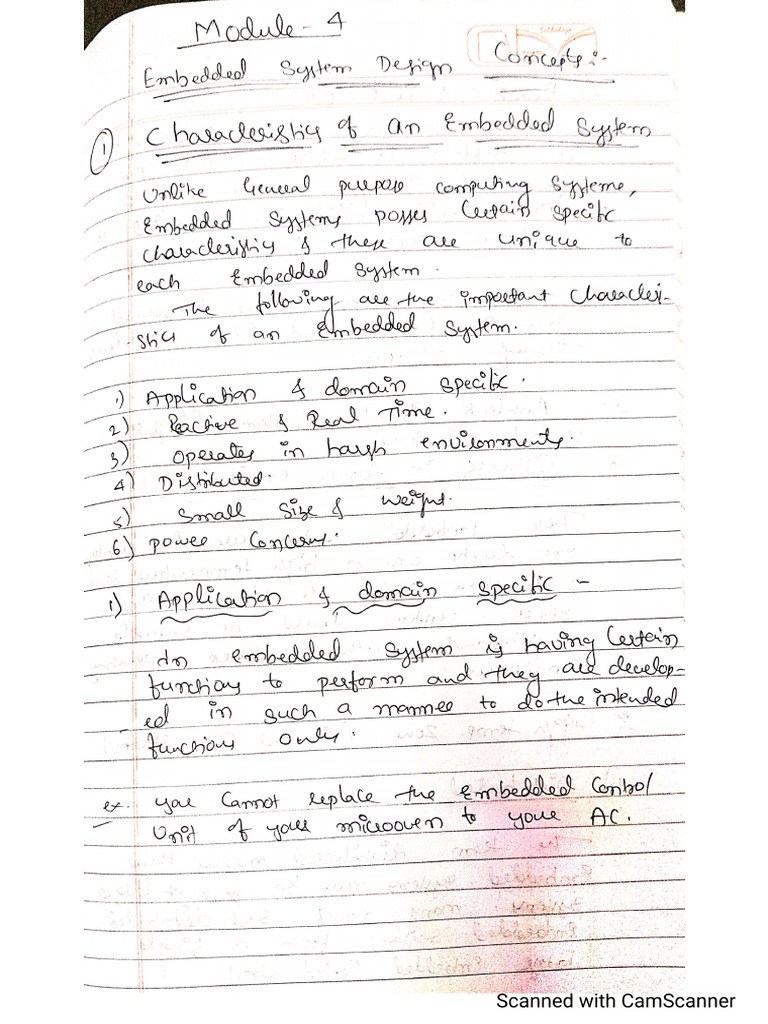 Module - 4
Embedded System Design Concepts :-
① Characteristics of an Embedded System
Unlike General purpose computing Systems,
Embedded Systems posses Certain Specific
characteristics & these are unique to
each Embedded System.
The following are the important Character-
-stics of an Embedded System.
1) Application & domain Specific.
2) Reactive & Real Time.
3) Operates in harsh environments.
4) Distributed.
5) Small Size & weight.
6) Power Concerns.
1) Application & domain Specific -
An Embedded System is having Certain
functions to perform and they are develop-
-ed in such a manner to do the intended
functions Only.
ex. you Cannot replace the Embedded Control
Unit of your microoven to your AC.
Scanned with CamScanner